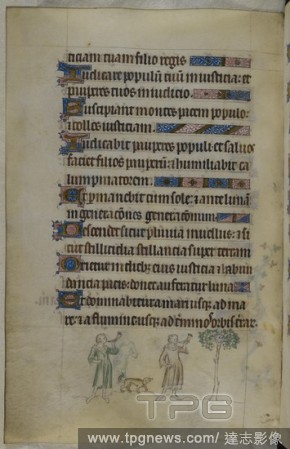 ticiam tuam filio regis
Iudicare populum tuum in iusticia: et
pauperes tuos in iudicio.
Suscipiant montes pacem populo:
et colles iusticiam.
Iudicabit pauperes populi et saluos
faciet filios pauperum: et humiliabit ca
lumpniatorem.
Et permanebit cum sole: et ante lunam
in generatione et generationum.
Descendet sicut pluuia in uellus: et si
cut stillicidia stillancia super terram
Orietur in diebus eius iusticia et habun
dancia pacis: donec auferatur luna
Et dominabitur a mari usque ad ma
re: et a flumine usque ad terminos orbis terrar
TPG
www.tpgnews.com / 達志影像